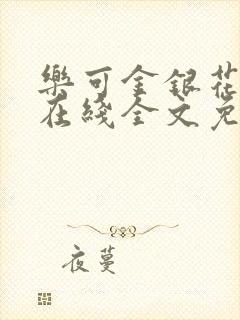 樂可金銀花
在綫全文免
夜蔓